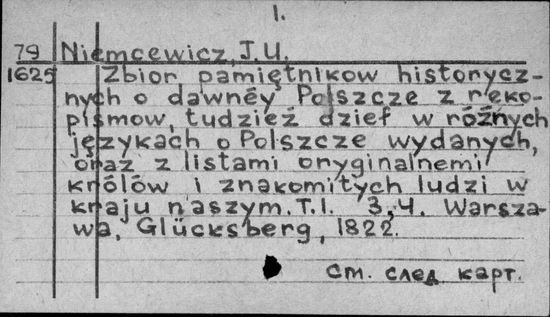 1.
79 Niemcewicz, J.U.
1625 Zbior pamiętnikow historycz-
nych o dawnéy Polszcze z ręko-
pismow, tudzież dzieł w różnych
językach o Polszcze wydanych,
oraz z listami oryginalnemi
królów i znakomitych ludzi w
kraju naszym. T.1. 3,4. Warsza-
wa, Glücksberg, 1822.
см. след карт.